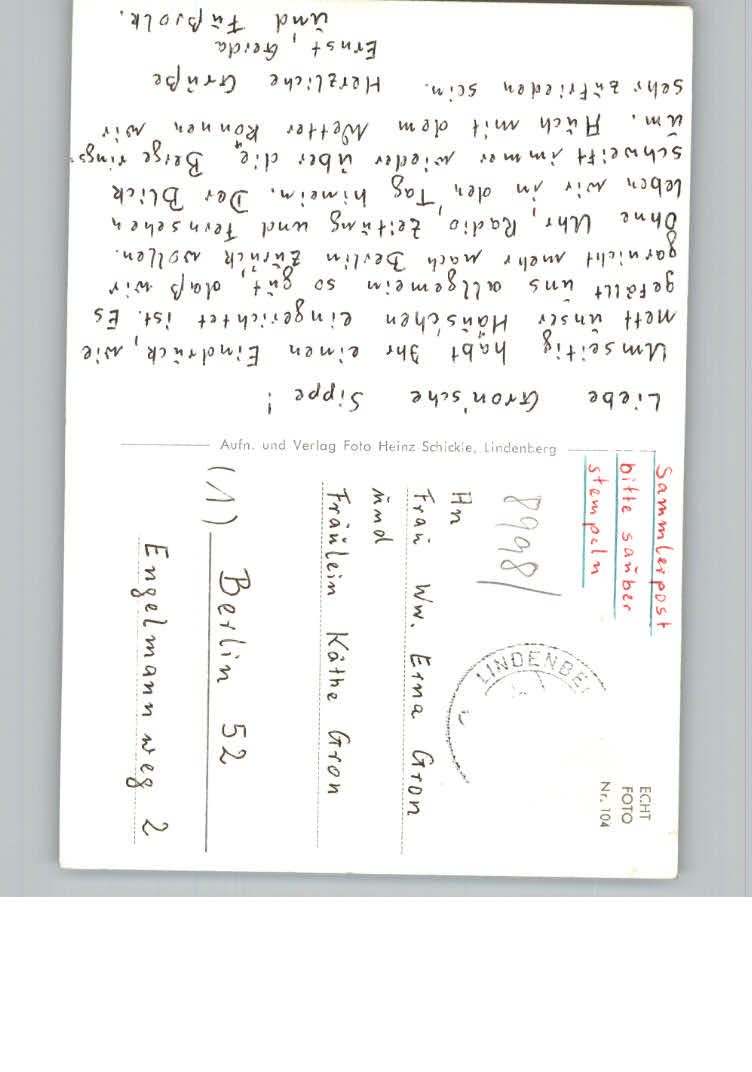 Liebe Gron'sche Sippe!
Umseitig habt Ihr einen Eindruck, wie
nett unser Häus'chen eingerichtet ist. Es
gefällt uns allgemein so gut, daß wir
garnicht mehr nach Berlin zurück wollen.
Ohne Uhr, Radio, Zeitung und Fernsehen
leben wir in den Tag hinein. Der Blick
schweift immer wieder über die Berge rings-
um. Auch mit dem Wetter können wir
sehr zufrieden sein. Herzliche Grüße
Ernst, Gerda
und Fußvolk.
Aufn. und Verlag Foto Heinz Schickle, Lindenberg
Sammlerpost
bitte sauber
stempeln
8998/
LINDENBE
ECHT
FOTO
Nr. 104
An
Frau Ww. Erna Gron
und
Fräulein Käthe Gron
(1) Berlin 52
Engelmannweg 2